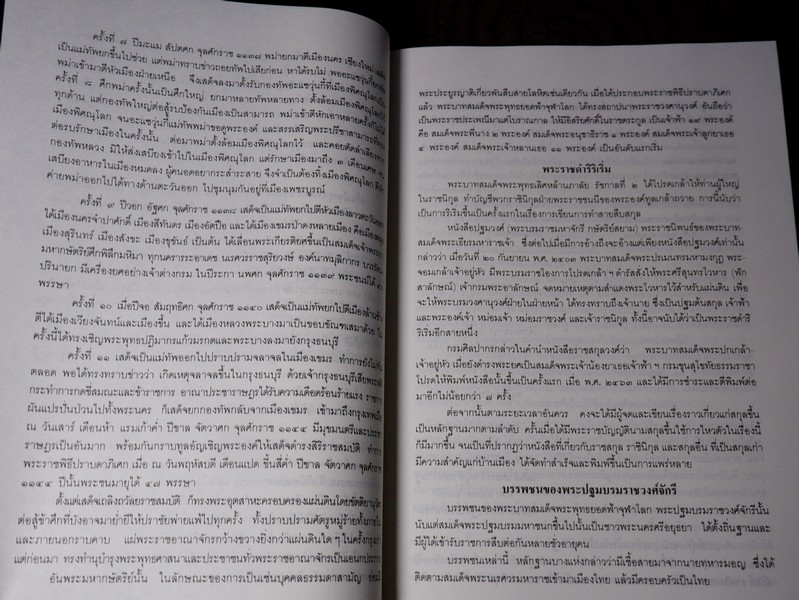 ครั้งที่ ๗ ปีมะแม สัปตศก จุลศักราช ๑๑๓๗ พม่ายกมาตีเมืองนคร เชียงใหม่
เป็นแม่ทัพยกขึ้นไปช่วย แต่พม่าทราบข่าวถอยทัพไปเสียก่อน หาได้รบไม่ พออะแซวุ่นกี้ยกทัพ
พม่าเข้ามาตีหัวเมืองฝ่ายเหนือ จึงเสด็จลงมาตั้งรับกองทัพอะแซวุ่นกี้ที่เมืองพิษณุโลก
ครั้งที่ ๘ ศึกพม่าครั้งนั้นเป็นศึกใหญ่ ยกมาหลายทัพหลายทาง ตั้งล้อมเมืองพิษณุโลก
ทุกด้าน แต่กองทัพใหญ่ต่อสู้รบป้องกันเมืองเป็นสามารถ พม่าเข้าตีหักเอาหลายครั้งก็ไม่ได้
เมืองพิษณุโลก จนอะแซวุ่นกี้แม่ทัพพม่าขอดูพระองค์ และสรรเสริญพระปรีชาสามารถ
ต่อรบรักษาเมืองในครั้งนั้น ต่อมาพม่าตั้งล้อมเมืองพิษณุโลกไว้ และคอยตัดลำเลียง
กองทัพหลวง มิให้ส่งเสบียงเข้าไปในเมืองพิษณุโลก แต่รักษาเมืองมาถึง ๓ เดือนเศษ
เสบียงอาหารในเมืองหมดลง ผู้คนอดอยากระส่ำระสาย จึงจำเป็นต้องทิ้งเมืองพิษณุโลก
ค่ายพม่าออกไปได้ทางด้านตะวันออก ไปชุมนุมกันอยู่ที่เมืองเพชรบูรณ์
ครั้งที่ ๙ ปีวอก อัฐศก จุลศักราช ๑๑๓๘ เสด็จเป็นแม่ทัพยกไปตีหัวเมืองลาวตะวันออก
ได้เมืองนครจำปาศักดิ์ เมืองสีทันดร เมืองอัตปือ และได้เมืองเขมรป่าดงหลายเมือง คือเมือง
เมืองสุรินทร์ เมืองสังขะ เมืองขุขันธ์ เป็นต้น ได้เลื่อนพระเกียรติยศขึ้นเป็นสมเด็จเจ้าพระยา
มหากษัตริย์ศึกพิลึกมหิมา ทุกนคราระอาเดช นเรศวรราชสุริยวงษ์ องค์บาทมุลิกากร
ปรินายก มีเครื่องยศอย่างเจ้าต่างกรม ในปีระกา นพศก จุลศักราช ๑๑๓๙ พระชนม์ได้
พรรษา
ครั้งที่ ๑๐ เมื่อปีจอ สัมฤทธิศก จุลศักราช ๑๑๔๐ เสด็จเป็นแม่ทัพยกไปตีเมืองล้านช้าง
ตีได้เมืองเวียงจันทน์และเมืองขึ้น และได้เมืองหลวงพระบางมาเป็นขอบขัณฑเสมาด้วย
ครั้งนี้ได้ทรงเชิญพระพุทธปฏิมากรแก้วมรกตและพระบางลงมายังกรุงธนบุรี
ครั้งที่ ๑๑ เสด็จเป็นแม่ทัพออกไปปราบปรามจลาจลในเมืองเขมร ทำการยังไม่
ตลอด พอได้ทรงทราบข่าวว่า เกิดเหตุจลาจลขึ้นในกรุงธนบุรี ด้วยเจ้ากรุงธนบุรีเสียพระสติ
กระทำการกดขี่สมณะและข้าราชการ อาณาประชาราษฎรได้รับความเดือดร้อนร้ายแรง
ผันแปรปั่นป่วนไปทั้งพระนคร ก็เสด็จยกกองทัพกลับจากเมืองเขมร เข้ามาถึงกรุงเทพฯ
ณ วันเสาร์ เดือนห้า แรมเก้าค่ำ ปีขาล จัตวาศก จุลศักราช ๑๑๔๔ มีมุขมนตรีและประชา
ราษฎรเป็นอันมาก พร้อมกันกราบทูลอัญเชิญพระองค์ให้เสด็จดำรงสิริราชสมบัติ ทำการ
พระราชพิธีปราบดาภิเษก เมื่อ ณ วันพฤหัสบดี เดือนแปด ขึ้นสี่ค่ำ ปีขาล จัตวาศก จุลศักราช
๑๑๔๔ ปีนั้นพระชนมายุได้ ๔๗ พรรษา
ตั้งแต่เสด็จเถลิงถวัลยราชสมบัติ ก็ทรงพระอุตสาหะครอบครองแผ่นดินโดยขัตติยานุวัตร
ต่อสู้ข้าศึกที่บังอาจมาย่ำยีให้ปราชัยพ่ายแพ้ไปทุกครั้ง ทั้งปราบปรามศัตรูหมู่ร้ายทั้งภายใน
และภายนอกราบคาบ แผ่พระราชอาณาจักรกว้างขวางยิ่งกว่าแผ่นดินใด ๆ ในครั้งกรุงเก่า
แต่ก่อนมา ทรงทำนุบำรุงพระพุทธศาสนาและประชาชนทั่วพระราชอาณาจักรเป็นเอนกประการ
อันพระมหากษัตริย์นั้น ในลักษณะของการเป็นเช่นบุคคลธรรมดาสามัญ ย่อมมี
พระประยูรญาติเกี่ยวพันสืบสายโลหิตเช่นเดียวกัน เมื่อได้ประกอบพระราชพิธีปราบดาภิเษก
แล้ว พระบาทสมเด็จพระพุทธยอดฟ้าจุฬาโลก ได้ทรงสถาปนาพระราชวงศานุวงศ์ อันถือว่า
เป็นพระราชประเพณีมาแต่โบราณกาล ให้มีอิสริยศักดิ์ในราชตระกูล เป็นเจ้าฟ้า ๑๙ พระองค์
คือ สมเด็จพระพี่นาง ๒ พระองค์ สมเด็จพระอนุชาธิราช ๑ พระองค์ สมเด็จพระเจ้าลูกยาเธอ
๔ พระองค์ สมเด็จพระเจ้าหลานเธอ ๑๑ พระองค์ เป็นอันดับแรกเริ่ม
พระราชดำริริเริ่ม
พระบาทสมเด็จพระพุทธเลิศหล้านภาลัย รัชกาลที่ ๒ ได้โปรดเกล้าให้ท่านผู้ใหญ่
ในราชนิกุล ทำบัญชีพวกราชินิกุลฝ่ายพระชนนีของพระองค์ทูลเกล้าถวาย การนี้นับว่า
เป็นการริเริ่มขึ้นเป็นครั้งแรกในเรื่องการเขียนการทำสายสืบสกุล
หนังสือปฐมวงศ์ (พระบรมราชมหาจักรี กษัตริย์สยาม) พระราชนิพนธ์ของพระบาท-
สมเด็จพระเธียรมหาราชเจ้า ซึ่งต่อไปเมื่อมีการอ้างถึงจะอ้างแต่เพียงหนังสือปฐมวงศ์เท่านั้น
กล่าวว่า เมื่อวันที่ ๒๐ กันยายน พ.ศ. ๒๔๐๓ พระบาทสมเด็จพระปรเมนทรมหามงกุฎ พระ-
จอมเกล้าเจ้าอยู่หัว มีพระบรมราชโองการโปรดเกล้า ฯ ดำรัสสั่งให้พระศรีสุนทรโวหาร (ฟัก
สาลักษณ์) เจ้ากรมพระอาลักษณ์ จดหมายเหตุตามสำแดงพระโวหารไว้สำหรับแผ่นดิน เพื่อ
จะให้พระบรมวงศานุวงศ์ฝ่ายในฝ่ายหน้า ได้ทรงทราบถึงเจ้านาย ซึ่งเป็นปฐมต้นสกุล เจ้าฟ้า
และพระองค์เจ้า หม่อมเจ้า หม่อมราชวงศ์ และเจ้าราชนิกูล ทั้งนี้อาจนับได้ว่าเป็นพระราชดำริ
ริเริ่มอีกสายหนึ่ง
กรมศิลปากรกล่าวในคำนำหนังสือราชสกุลวงศ์ว่า พระบาทสมเด็จพระปกเกล้า-
เจ้าอยู่หัว เมื่อยังดำรงพระยศเป็นสมเด็จเจ้าน้องยาเธอเจ้าฟ้า ฯ กรมขุนสุโขทัยธรรมราชา
โปรดให้พิมพ์หนังสือนั้นขึ้นเป็นครั้งแรก เมื่อ พ.ศ. ๒๔๖๓ และได้มีการชำระและตีพิมพ์ต่อ
มาอีกไม่น้อยกว่า ๗ ครั้ง
ต่อจากนั้นตามระยะเวลาอันควร คงจะได้มีผู้จดและเขียนเรื่องราวเกี่ยวแก่สกุลขึ้น
เป็นหลักฐานมากตามลำดับ ครั้นเมื่อได้มีพระราชบัญญัตินามสกุลขึ้นใช้การไหวตัวในเรื่องนี้
ก็มีมากขึ้น จนเป็นที่ปรากฏว่าหนังสือที่เกี่ยวกับราชสกุล ราชินิกุล และสกุลอื่น ที่เป็นสกุลเก่า
มีความสำคัญแก่บ้านเมือง ได้จัดทำสำเร็จและพิมพ์ขึ้นเป็นการแพร่หลาย
บรรพชนของพระปฐมบรมราชวงศ์จักรี
บรรพชนของพระบาทสมเด็จพระพุทธยอดฟ้าจุฬาโลก พระปฐมบรมราชวงศ์จักรีนั้น
นับแต่สมเด็จพระปฐมบรมมหาชนกขึ้นไปนั้นเป็นชาวพระนครศรีอยุธยา ได้ตั้งถิ่นฐานและ
มีผู้ได้เข้ารับราชการสืบต่อกันหลายชั่วอายุคน
บรรพชนเหล่านี้ หลักฐานบางแห่งกล่าวว่ามีเชื้อสายมาจากนายทหารมอญ ซึ่งได้
ติดตามสมเด็จพระนเรศวรมหาราชเข้ามาเมืองไทย แล้วมีครอบครัวเป็นไทย